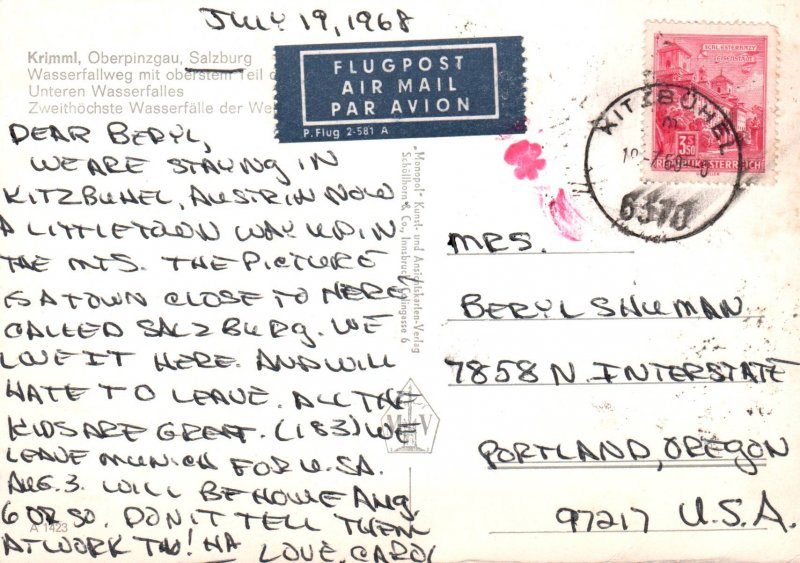 JULY 19, 1968
Krimml, Oberpinzgau, Salzburg
Wasserfallweg mit oberstem Teil d
Unteren Wasserfalles
Zweithöchste Wasserfälle der We
FLUGPOST
AIR MAIL
PAR AVION
P. Flug 2-581 A
DEAR BERYL,
WE ARE STAYING IN
KITZBUHEL, AUSTRIA NOW
A LITTLE TOWN WAY UP IN
THE MTS. THE PICTURE
IS A TOWN CLOSE TO HERE
CALLED SALZBURG. WE
LOVE IT HERE. AND WILL
HATE TO LEAVE. ALL THE
KIDS ARE GREAT. (183) WE
LEAVE MUNICH FOR U.SA.
AUG. 3. WILL BE HOME AUG.
6 OR SO. DON'T TELL THEM
AT WORK THO! HA LOVE, CAROL
A 1423
„Monopol" Kunst- und Ansichtskarten-Verlag
Schöllhorn & Co., Innsbruck,
6
M V
KITZBÜHEL
6370
3.50
REPUBLIK ÖSTERREICH
MRS.
BERYL SHUMAN
7858 N INTERSTATE
PORTLAND, OREGON
97217 U.S.A.